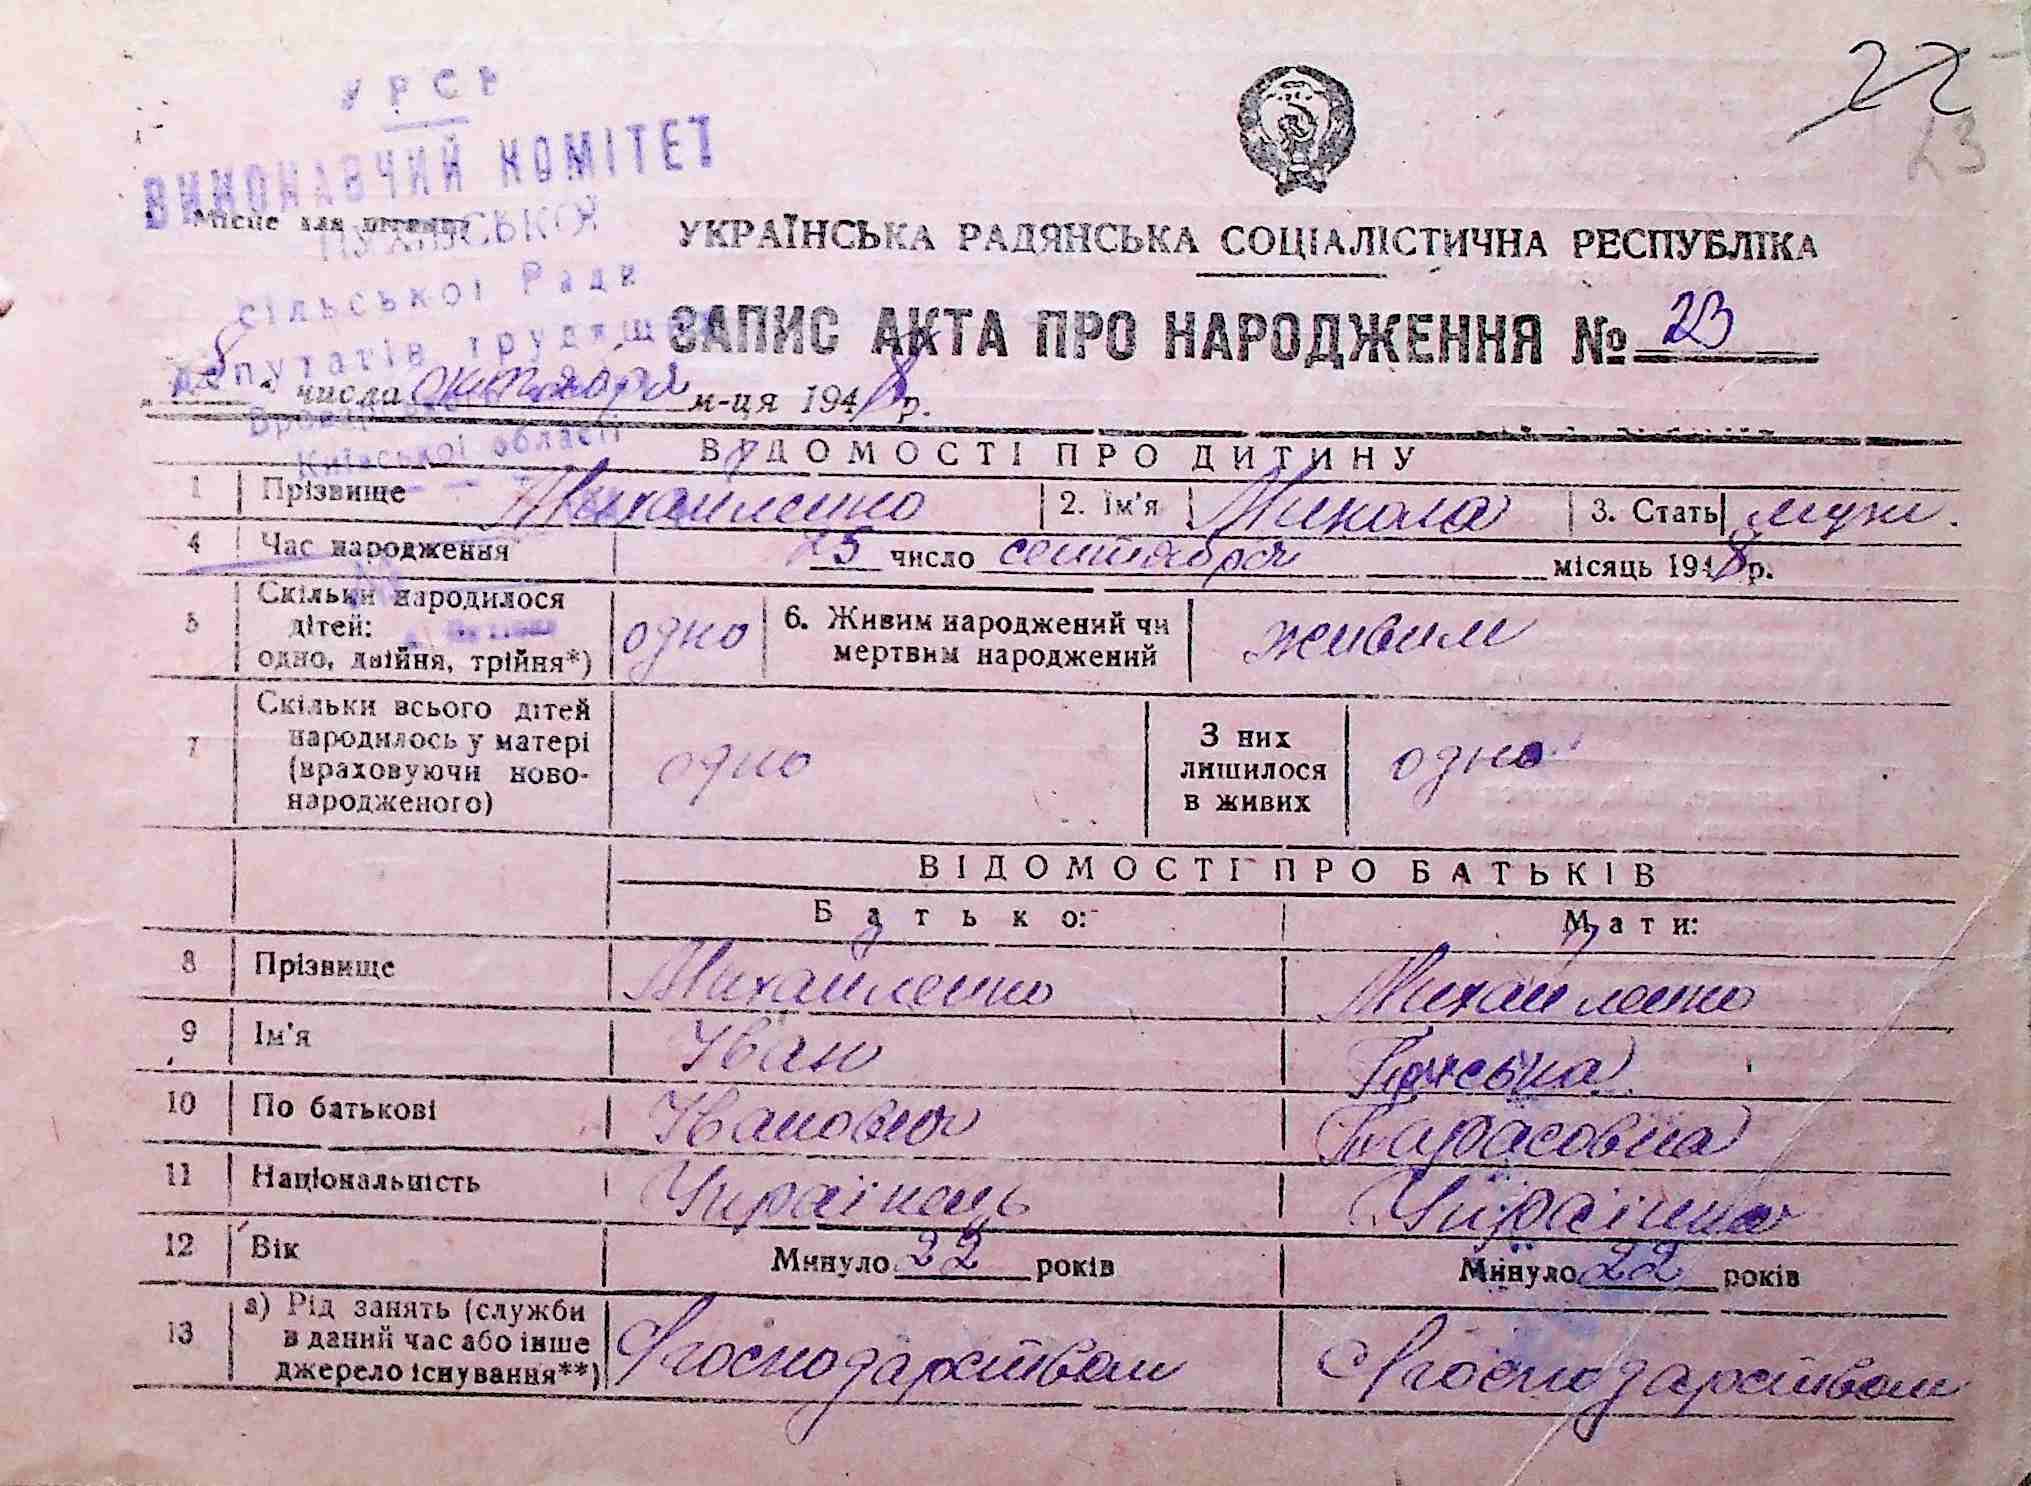 22
23
УРСР
ВИКОНАВЧИЙ КОМІТЕТ
Місце для штампу
ПУХІВСЬКОЇ
сільської Ради
депутатів трудящ
Броварського
Київської області
УКРАЇНСЬКА РАДЯНСЬКА СОЦІАЛІСТИЧНА РЕСПУБЛІКА
ЗАПИС АКТА ПРО НАРОДЖЕННЯ № 23
„8“ числа октября м-ця 1948 р.
ВІДОМОСТІ ПРО ДИТИНУ
1 Прізвище Михайленко 2. Ім'я Микола 3. Стать муж.
4 Час народження 25 число сентября місяць 1948 р.
5 Скільки народилося дітей: одно, двійня, трійня*) одно 6. Живим народжений чи мертвим народжений живим
7 Скільки всього дітей народилось у матері (враховуючи новонародженого) одно З них лишилося в живих одно
ВІДОМОСТІ ПРО БАТЬКІВ
Батько: Мати:
8 Прізвище Михайленко Михайленко
9 Ім'я Іван
10 По батькові Іванович Тарасовна
11 Національність Українець Українка
12 Вік Минуло 22 років Минуло 22 років
13 а) Рід занять (служби в даний час або інше джерело існування**) С/господарством С/господарством